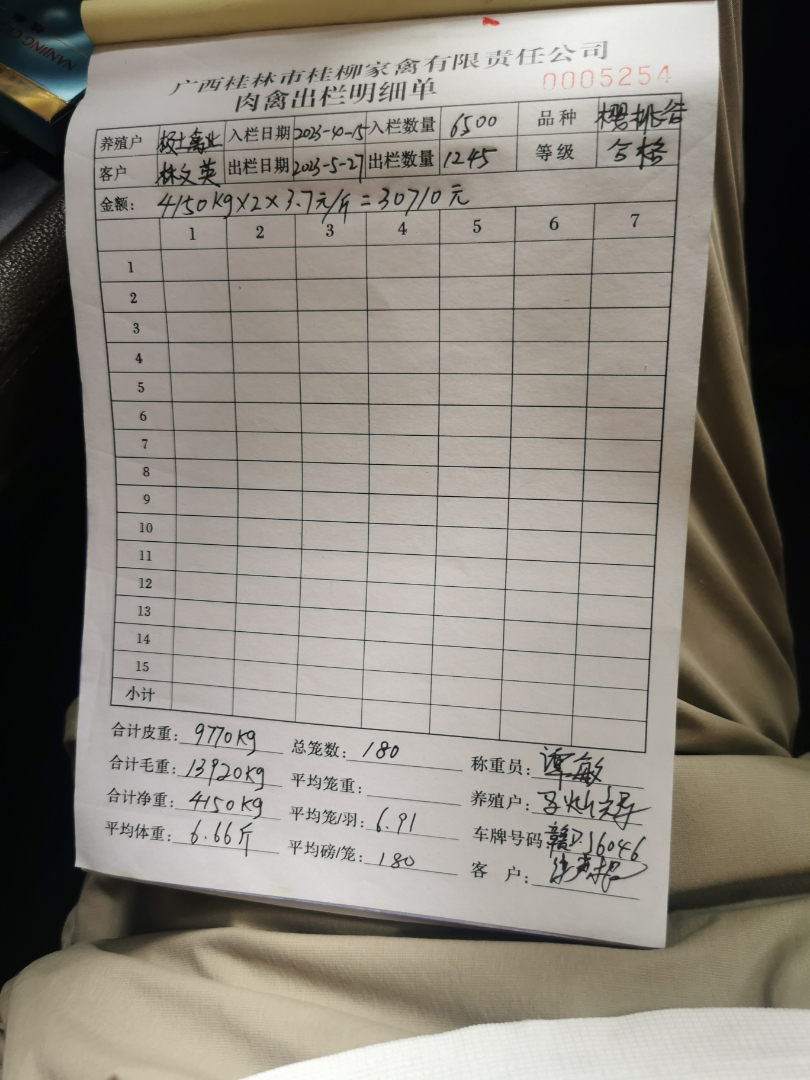 NANNING
广西桂林市桂柳家禽有限责任公司
肉禽出栏明细单 0005254
养殖户 入栏日期 2023-40-15 入栏数量 6500 品种 樱桃谷
客户 林文英 出栏日期 2023-5-27 出栏数量 1245 等级 合格
金额: 4150kg×2×3.7元/斤=30710元
1 2 3 4 5 6 7
1
2
3
4
5
6
7
8
9
10
11
12
13
14
15
小计
合计皮重: 9770kg 总笼数: 180 称重员: 谭敏
合计毛重: 13920kg 平均笼重: 养殖户:
合计净重: 4150kg 平均笼/羽: 6.91 车牌号码 赣D.J6046
平均体重: 6.66斤 平均磅/笼: 180 客户: